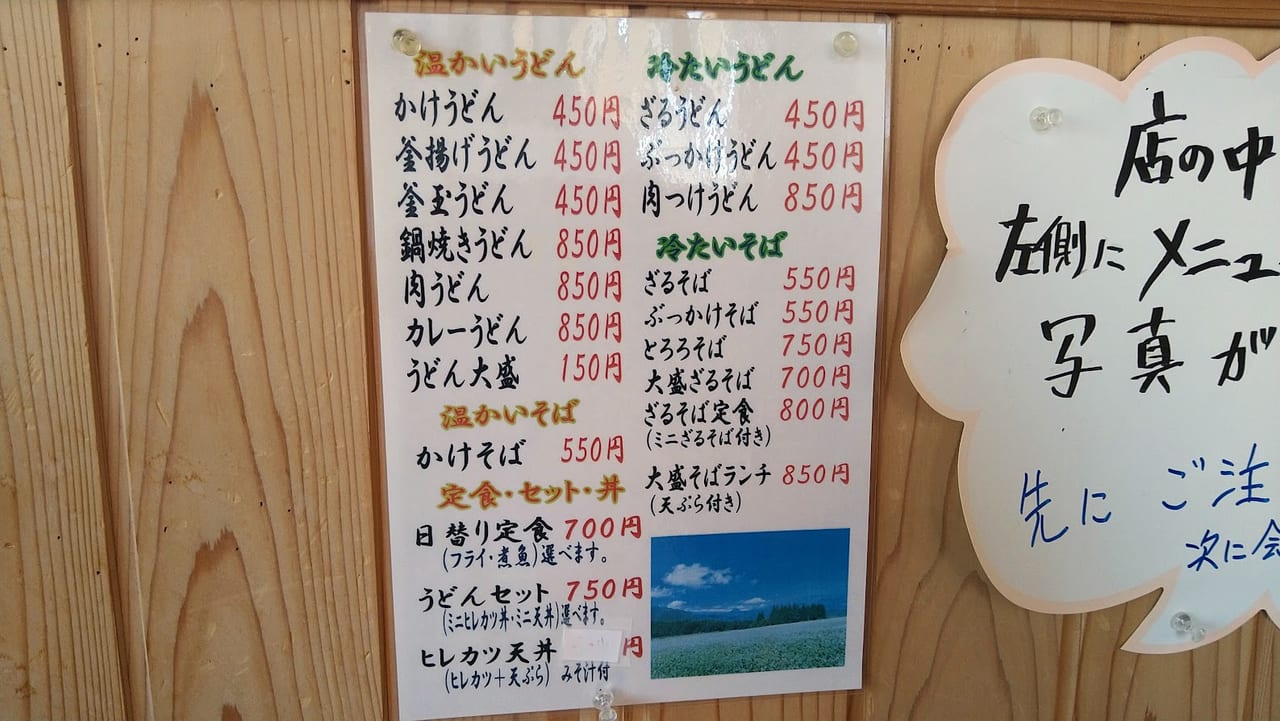 温かいうどん
かけうどん 450円
釜揚げうどん 450円
釜玉うどん 450円
鍋焼きうどん 850円
肉うどん 850円
カレーうどん 850円
うどん大盛 150円
温かいそば
かけそば 550円
定食・セット・丼
日替り定食 700円
(フライ・煮魚)選べます。
うどんセット 750円
(ミニヒレカツ丼・ミニ天丼)選べます。
ヒレカツ天丼 円
(ヒレカツ+天ぷら) みそ汁付
冷たいうどん
ざるうどん 450円
ぶっかけうどん 450円
肉つけうどん 850円
冷たいそば
ざるそば 550円
ぶっかけそば 550円
とろろそば 750円
大盛ざるそば 700円
ざるそば定食 800円
(ミニざるそば付き)
大盛そばランチ 850円
(天ぷら付き)
店の中
左側にメニュ
写真が
先に ご注
次に会